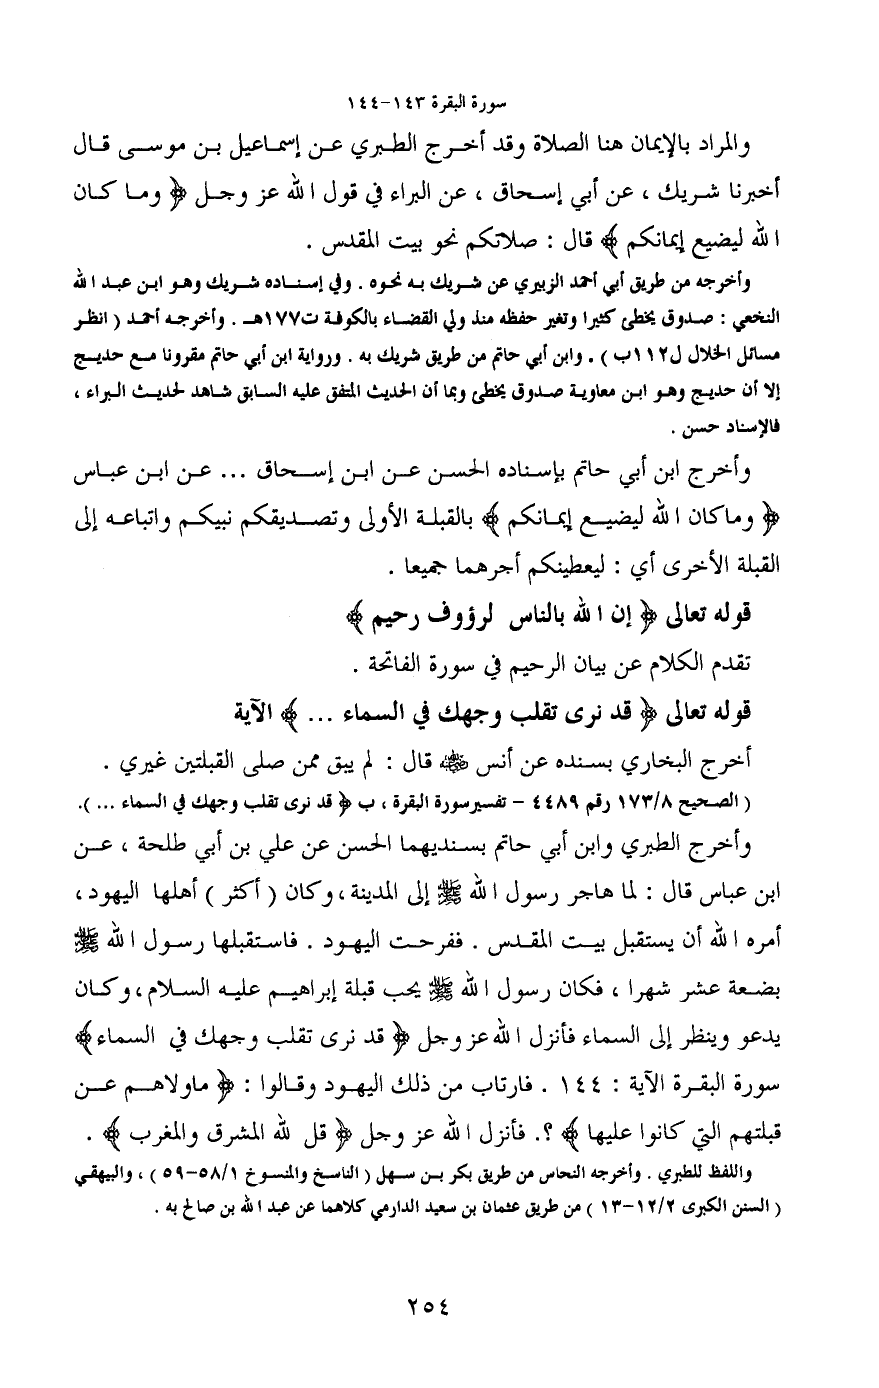 سورة البقرة ١٤٣-١٤٤
والمراد بالإيمان هنا الصلاة وقد أخرج الطبري عن إسماعيل بن موسى قال
أخبرنا شريك ، عن أبي إسحاق ، عن البراء في قول الله عز وجل ﴿ وما كان
الله ليضيع إيمانكم ﴾ قال : صلاتكم نحو بيت المقدس .
وأخرجه من طريق أبي أحمد الزبيري عن شريك به نحوه . وفي إسناده شريك وهو ابن عبد الله
النخعي : صدوق يخطئ كثيرا وتغير حفظه منذ ولي القضاء بالكوفة ت١٧٧هـ . وأخرجه أحمد ( انظر
مسائل الخلال ل١١٢ب ) . وابن أبي حاتم من طريق شريك به . ورواية ابن أبي حاتم مقرونا مع حديج
إلا أن حديج وهو ابن معاوية صدوق يخطئ وبما أن الحديث المتفق عليه السابق شاهد لحديث البراء ،
فالإسناد حسن .
وأخرج ابن أبي حاتم بإسناده الحسن عن ابن إسحاق ... عن ابن عباس
﴿ وماكان الله ليضيع إيمانكم ﴾ بالقبلة الأولى وتصديقكم نبيكم واتباعه إلى
القبلة الأخرى أي : ليعطينكم أجرهما جميعا .
قوله تعالى ﴿ إن الله بالناس لرؤوف رحيم ﴾
تقدم الكلام عن بيان الرحيم في سورة الفاتحة .
قوله تعالى ﴿ قد نرى تقلب وجهك في السماء ... ﴾ الآية
أخرج البخاري بسنده عن أنس رضي الله عنه قال : لم يبق ممن صلى القبلتين غيري .
( الصحيح ١٧٣/٨ رقم ٤٤٨٩ - تفسيرسورة البقرة ، ب ﴿ قد نرى تقلب وجهك في السماء ... ).
وأخرج الطبري وابن أبي حاتم بسنديهما الحسن عن علي بن أبي طلحة ، عن
ابن عباس قال : لما هاجر رسول الله ﷺ إلى المدينة ، وكان ( أكثر ) أهلها اليهود ،
أمره الله أن يستقبل بيت المقدس . ففرحت اليهود . فاستقبلها رسول الله ﷺ
بضعة عشر شهرا ، فكان رسول الله ﷺ يحب قبلة إبراهيم عليه السلام ، وكان
يدعو وينظر إلى السماء فأنزل الله عز وجل ﴿ قد نرى تقلب وجهك في السماء ﴾
سورة البقرة الآية : ١٤٤ . فارتاب من ذلك اليهود وقالوا : ﴿ ماولاهم عن
قبلتهم التي كانوا عليها ﴾ ؟. فأنزل الله عز وجل ﴿ قل لله المشرق والمغرب ﴾ .
واللفظ للطبري . وأخرجه النحاس من طريق بكر بن سهل ( الناسخ والمنسوخ ٥٨/١-٥٩ ) ، والبيهقي
( السنن الكبرى ١٢/٢-١٣ ) من طريق عثمان بن سعيد الدارمي كلاهما عن عبد الله بن صالح به .
٢٥٤